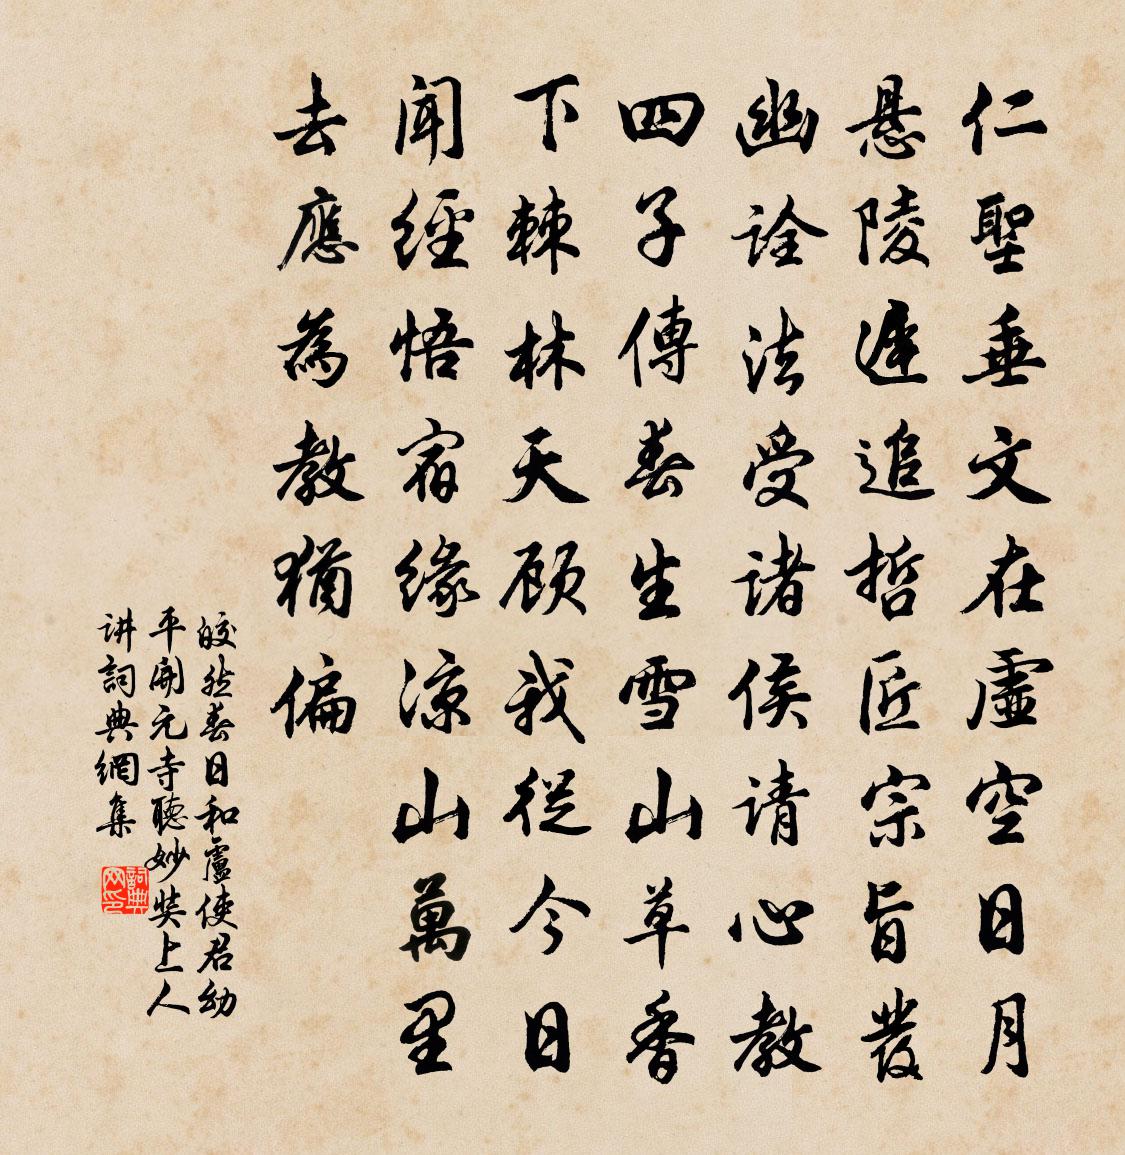 仁聖垂文在虛空日月
悬陵遲追哲匠宗旨發
幽詮法受諸侯請心教
四子傳春生雪山草香
下棘林天顾我從今日
聞經悟宿緣涼山萬里
去應為教猶偏
皎然春日和盧使君幼
平開元寺聽妙奘上人
讲詞典網集
詞典
网印